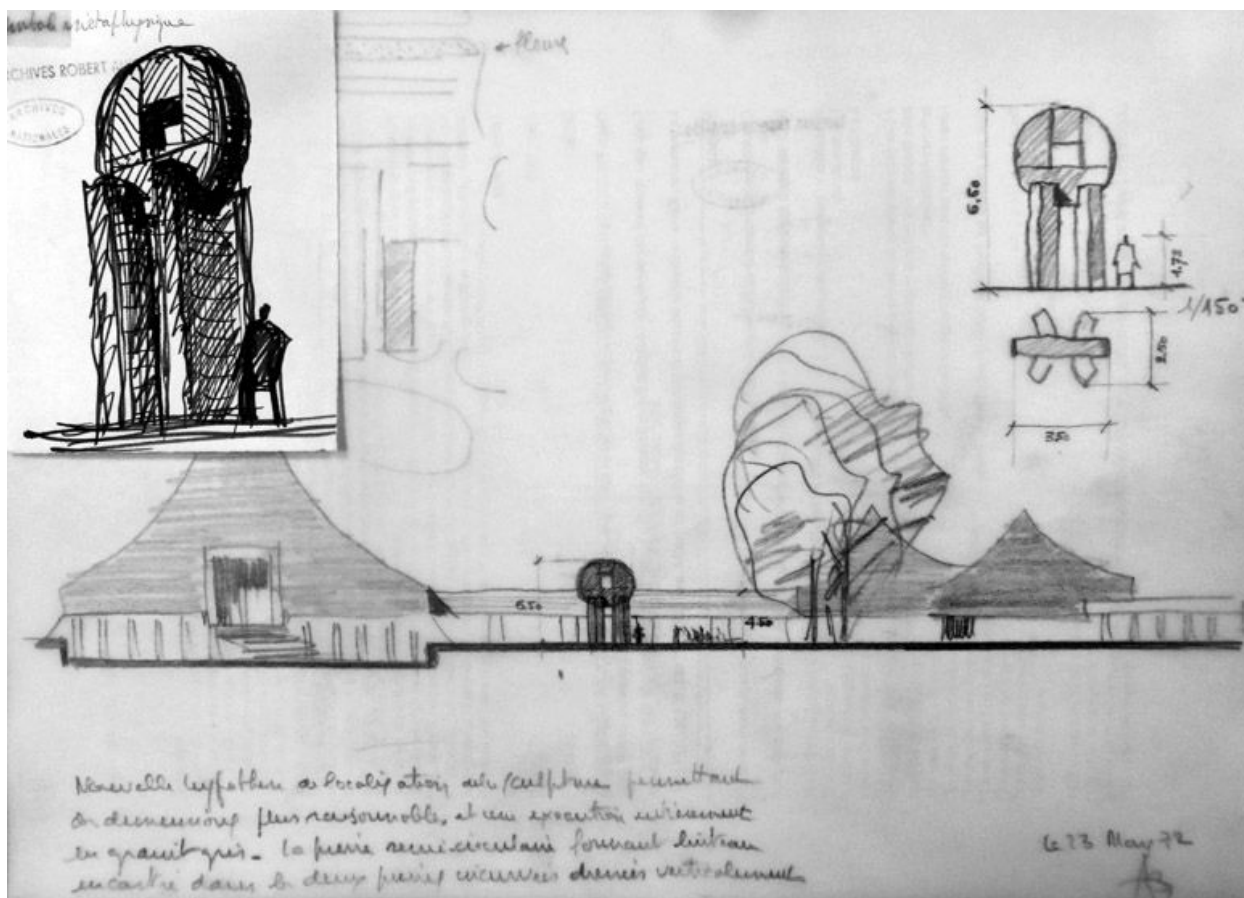 métaphysique
ARCHIVES ROBERT
ARCHIVES
NATIONALES
fleurs
6,50
1,72
1/150
2,50
350
6.50
4.50
Nouvelle hypothèse de localisation de la sculpture permettant
des dimensions plus raisonnable, et une exécution entièrement
en granit gris - la pierre semi circulaire formant linteau
encastré dans les deux pierres incurvées dressées verticalement
Le 23 May 72